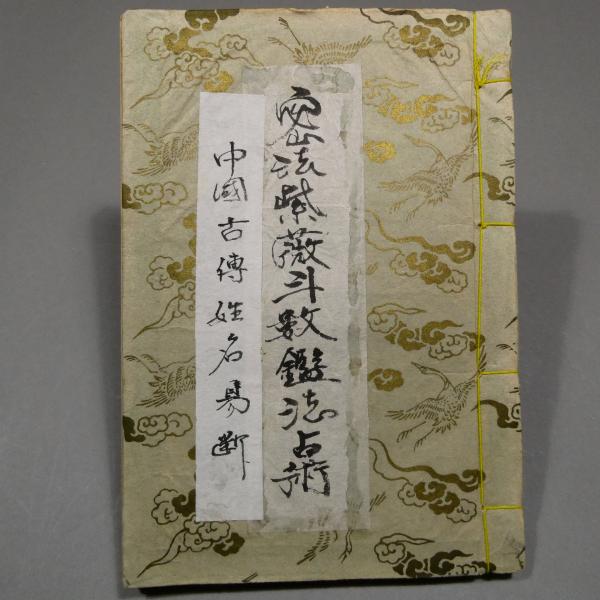 密法紫薇斗数鑑法占術
中國古傳姓名易断